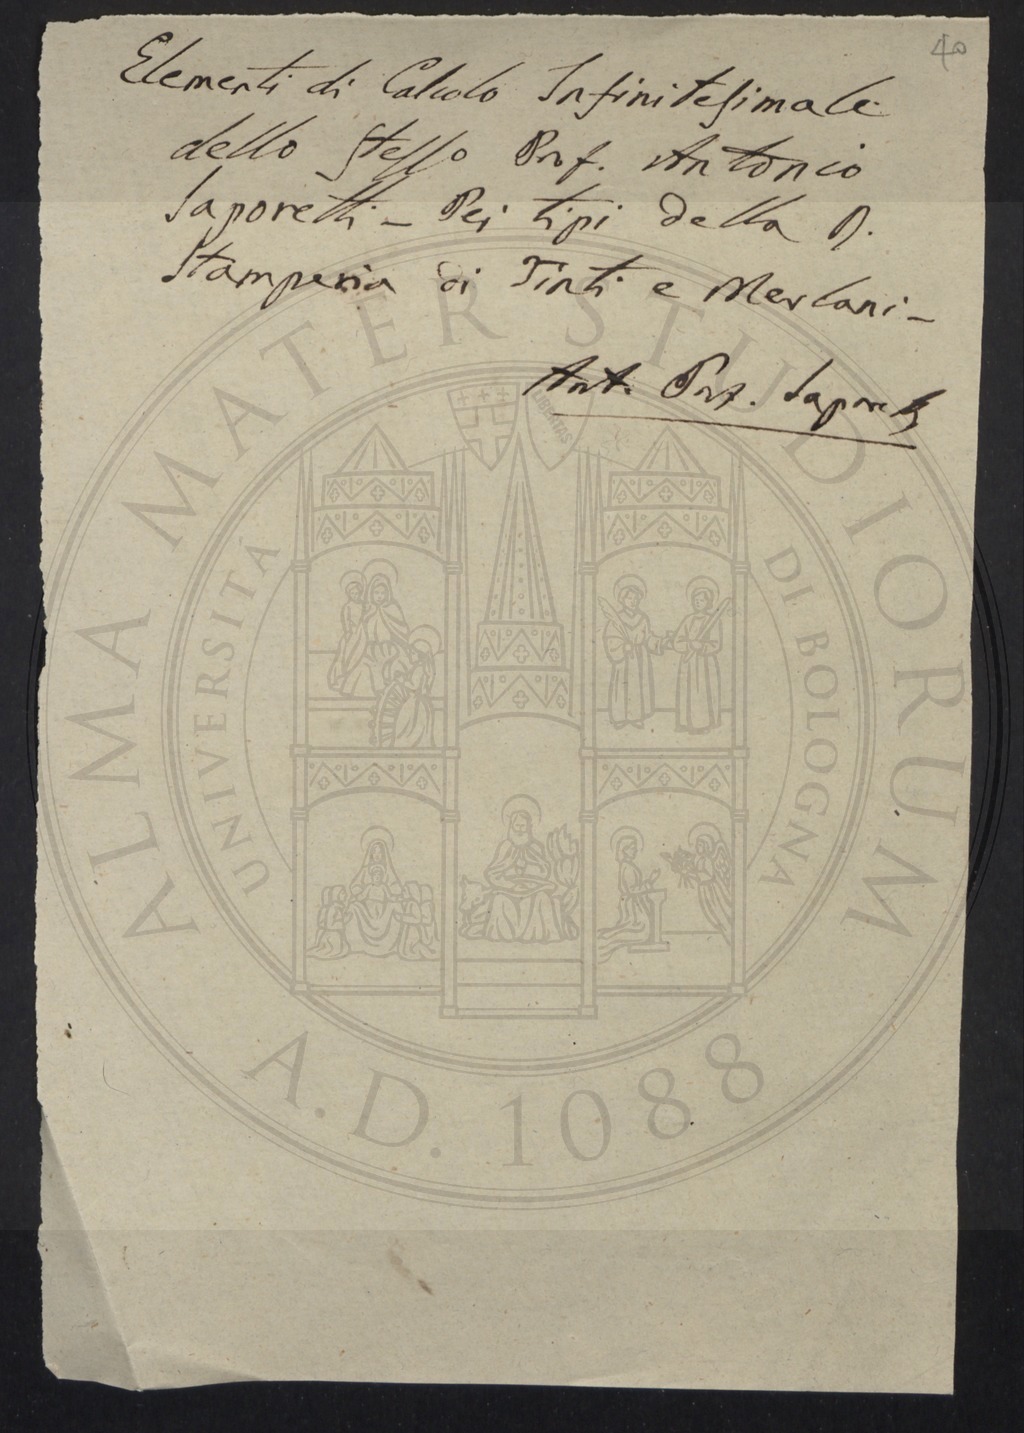 40
Elementi di Calcolo Infinitesimale
dello stesso Prof. Antonio
Saporetti – Pei tipi della R.
Stamperia di Tinti e Merlani –
Ant. Prof. Saporetti
ALMA MATER STUDIORUM
UNIVERSITÀ DI BOLOGNA
LIBERTAS
A.D. 1088